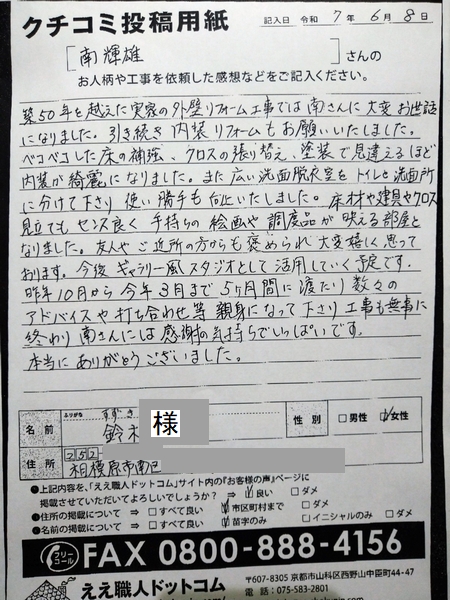 クチコミ投稿用紙 記入日 令和 7年 6月 8日
[南輝雄 ]さんの
お人柄や工事を依頼した感想などをご記入ください。
築50年を越えた実家の外壁リフォーム工事では南さんに大変お世話
になりました。引き続き内装リフォームもお願いいたしました。
ベコベコした床の補強、クロスの張り替え、塗装で見違えるほど
内装が綺麗になりました。また広い洗面脱衣室をトイレと洗面所
に分けて下さり使い勝手も向上いたしました。床材や建具やクロス
見立てもセンス良く手持ちの絵画や調度品が映える部屋と
なりました。友人やご近所の方からも褒められ大変嬉しく思って
おります。今後ギャラリー風スタジオとして活用していく予定です。
昨年10月から今年3月まで5ヶ月間に渡たり数々の
アドバイスや打ち合わせ等親身になって下さり工事も無事に
終わり南さんには感謝の気持ちでいっぱいです。
本当にありがとうございました。
ふりがな すずき
名前 鈴木 様 性別 □男性 ☑女性
住所 252
相模原市南区
●上記内容を、「ええ職人ドットコム」サイト内の『お客様の声』ページに
掲載させていただいてよろしいでしょうか? ⇒ ☑良い □ダメ
●住所の掲載について ⇒ □すべて良い ☑市区町村まで □ダメ
●名前の掲載について ⇒ □すべて良い ☑苗字のみ □イニシャルのみ □ダメ
フリーコール FAX 0800-888-4156
ええ職人ドットコム 〒607-8305 京都市山科区西野山中臣町44-47
電話:075-583-2801